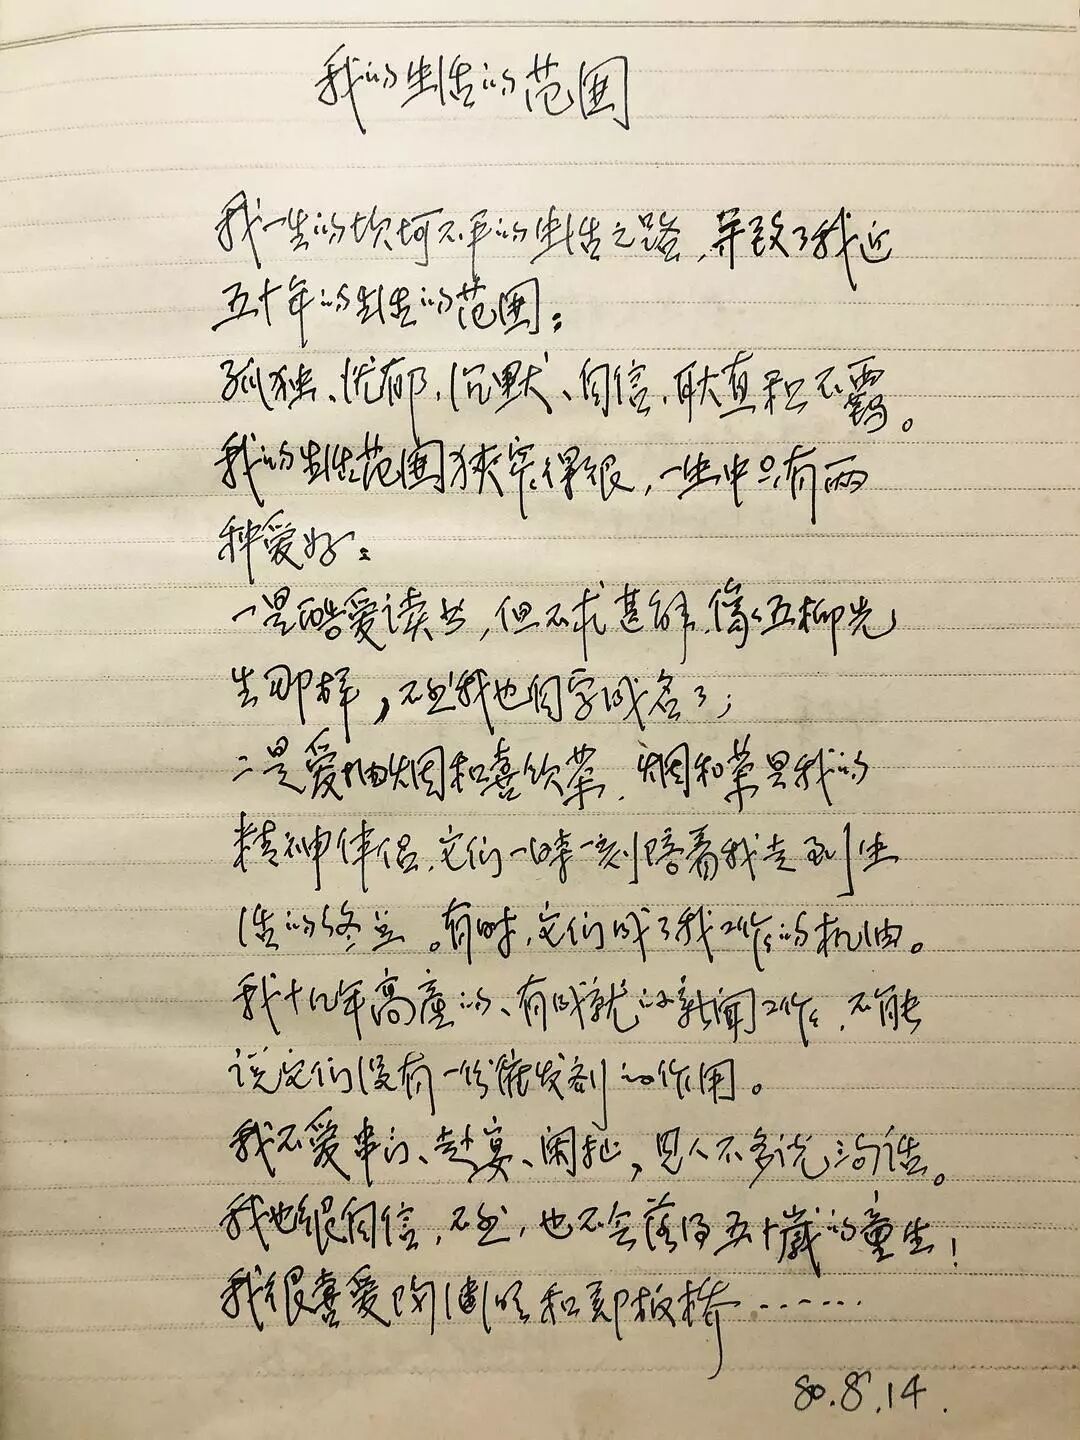 我的生活的范围
我一生的坎坷不平的生活之路,导致了我近
五十年的生活的范围:
孤独、忧郁,沉默、自信,耿直和不羁。
我的生活范围狭窄得很,一生中只有两
种爱好:
一是酷爱读书,但不求甚解,像五柳先
生那样,不过我也自学成名了;
二是爱抽烟和喜饮茶,烟和茶是我的
精神伴侣,它们一时一刻陪着我走到生
活的终点。有时,它们成了我工作的机油。
我十几年高产的、有成就的新闻工作,不能
说它们没有一份催发剂的作用。
我不爱串门、赴宴、闲扯,见人不多说三句话。
我也很自信,不然,也不会落得五十岁的童生!
我很喜爱陶渊明和郑板桥……
80.8.14.